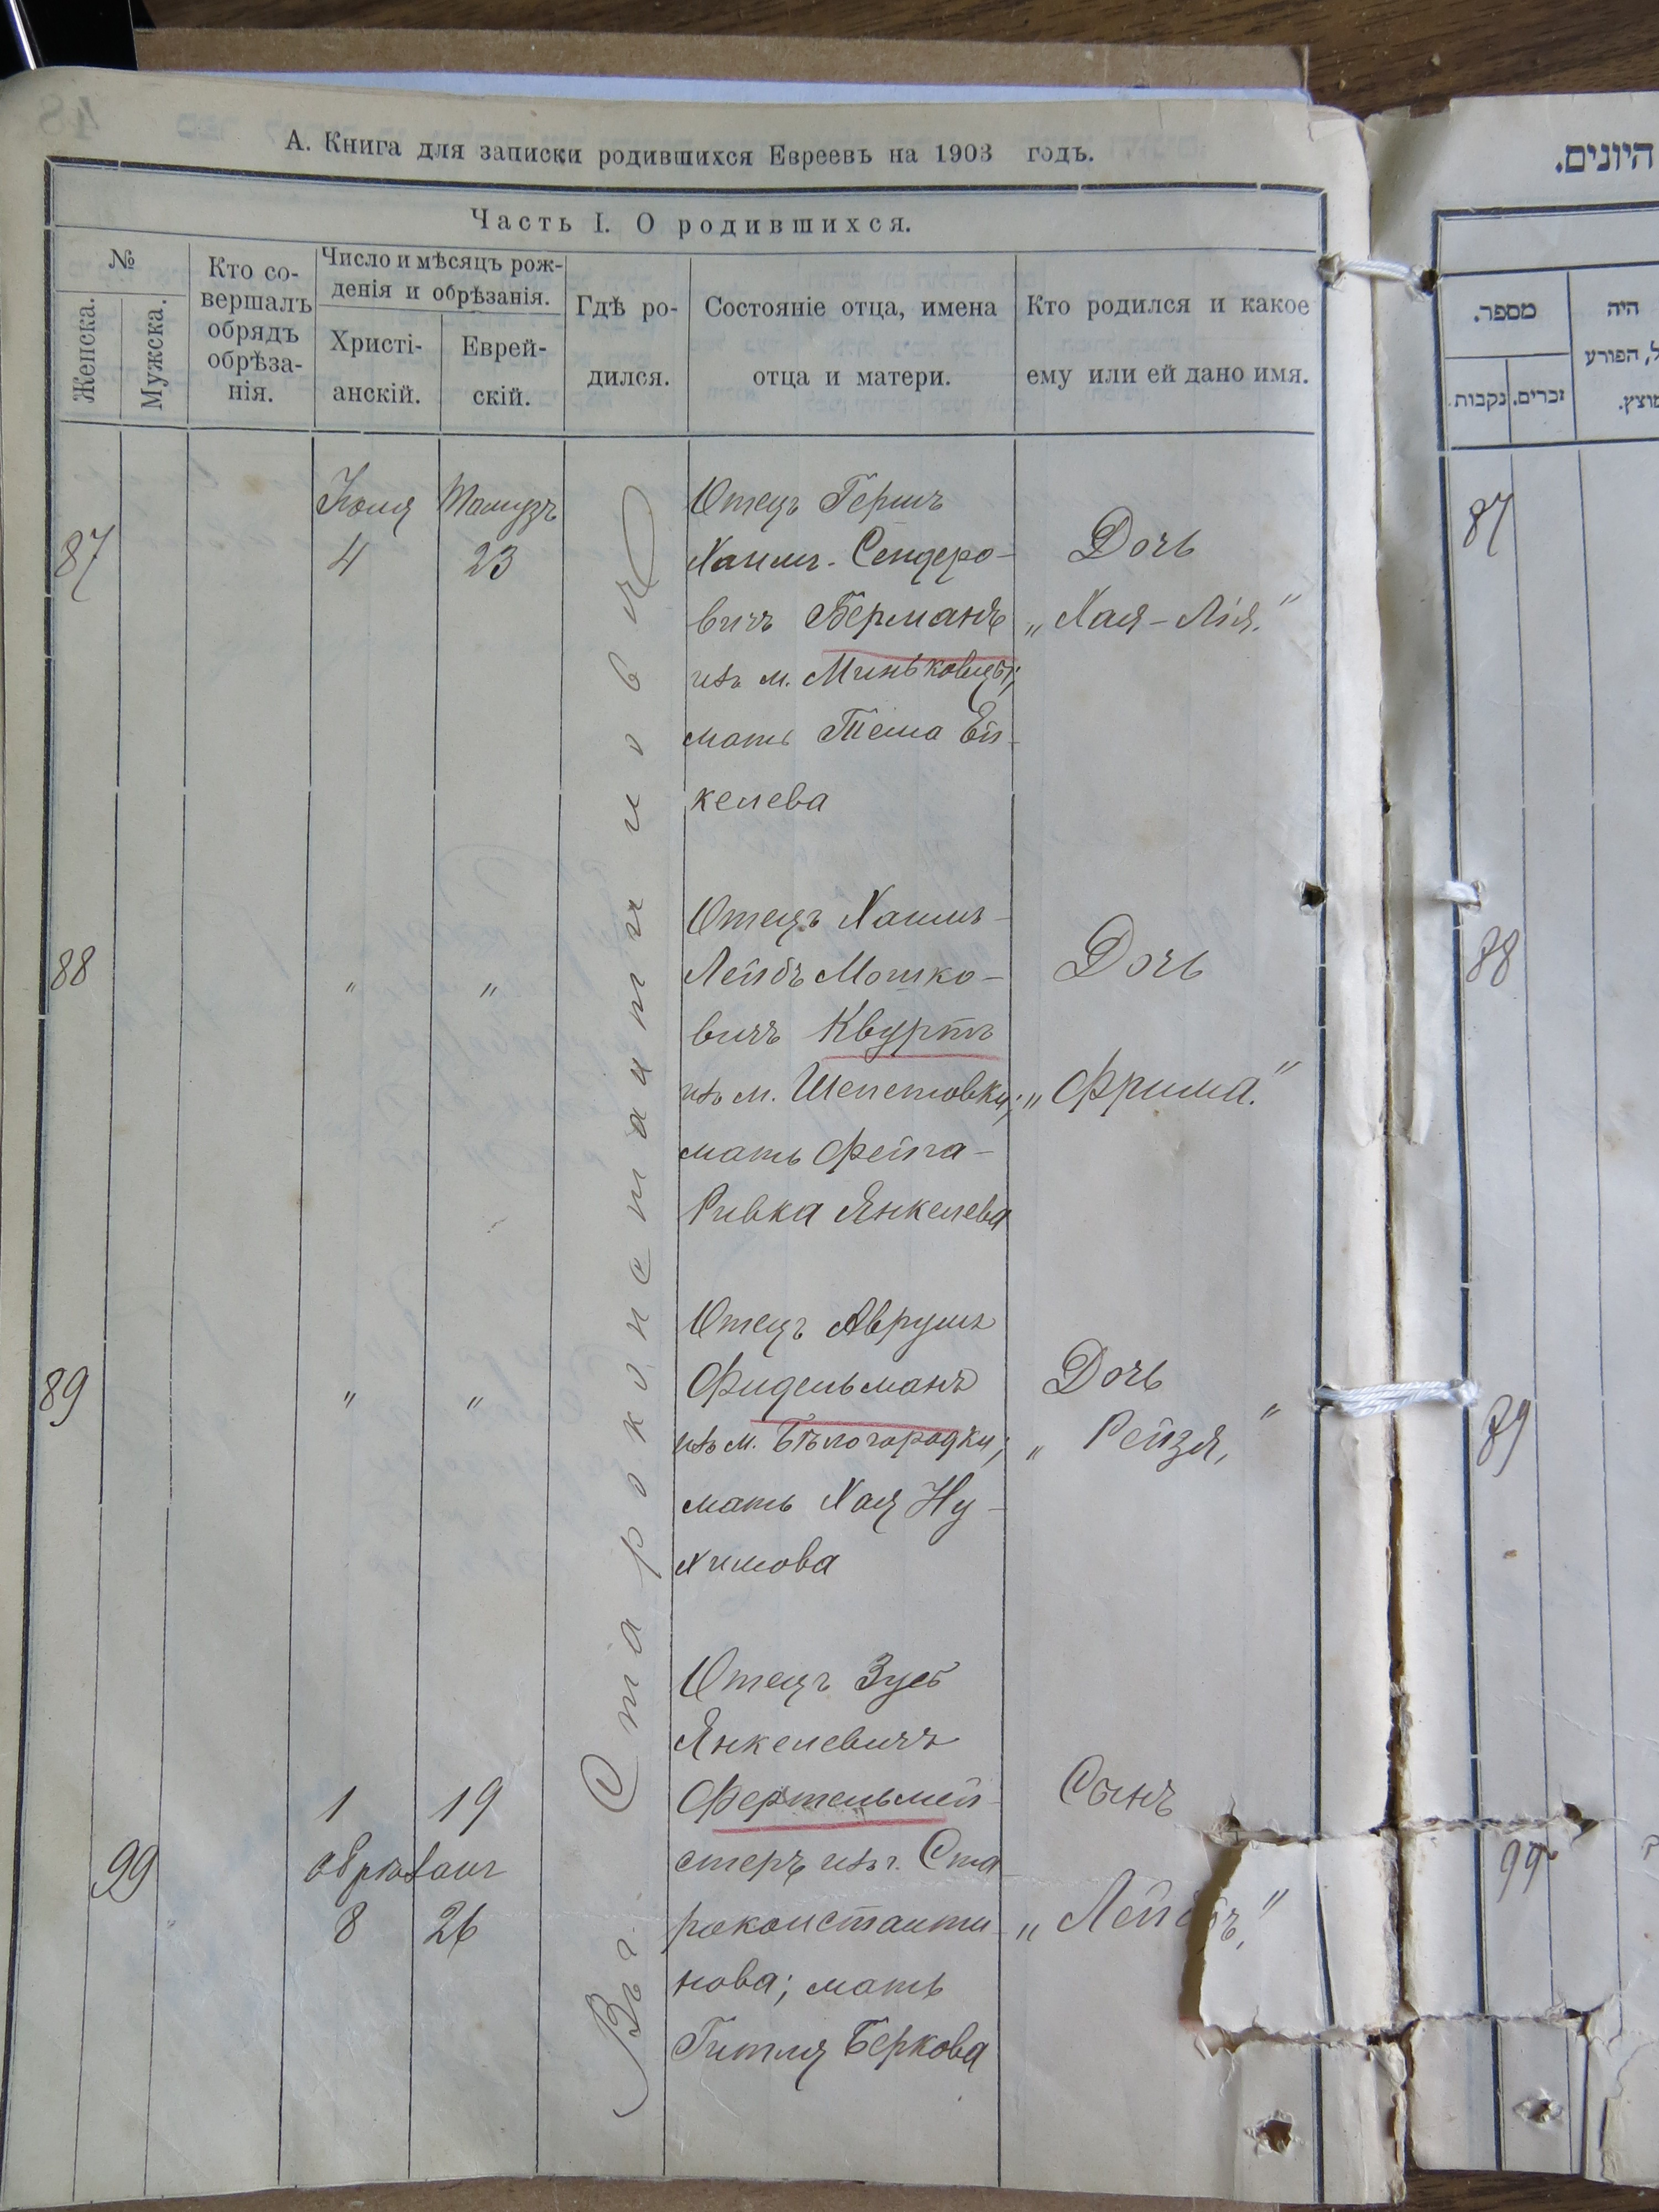 А. Книга для записки родившихся Евреевъ на 1903 годъ.
Часть I. О родившихся.
№
Женска.
Мужска.
Кто со-
вершалъ
обрядъ
обрѣза-
нія.
Число и мѣсяцъ рож-
денія и обрѣзанія.
Христі-
анскій.
Еврей-
скій.
Гдѣ ро-
дился.
Состояніе отца, имена
отца и матери.
Кто родился и какое
ему или ей дано имя.
Въ г. Староконстантиновѣ
87
Іюля Тамузъ
4 23
Отецъ Гершъ
Хаимъ-Сендеро-
вичъ Берманъ
изъ м. Миньковцы;
мать Тема Ей-
келева
Дочь
„Хая-Лія."
88
" "
Отецъ Хаимъ-
Лейбъ Мошко-
вичъ Квуртъ
изъ м. Шепетовки;
мать Фейга-
Ривка Янкелева
Дочь
„Фрима."
89
" "
Отецъ Аврумъ
Фидельманъ
изъ м. Бѣлогородки;
мать Хая Ну-
химова
Дочь
„Рейзя,"
99
1 19
обрѣзанъ
8 26
Отецъ Зусъ
Янкелевичъ
Фертельмей-
стеръ изъ г. Ста-
роконстанти-
нова; мать
Гитля Беркова
Сынъ
„Лейбъ,"
היונים.
מספר.
נקבות
זכרים.
היה
ל, הפורע
מוצץ.
87
88
89
99